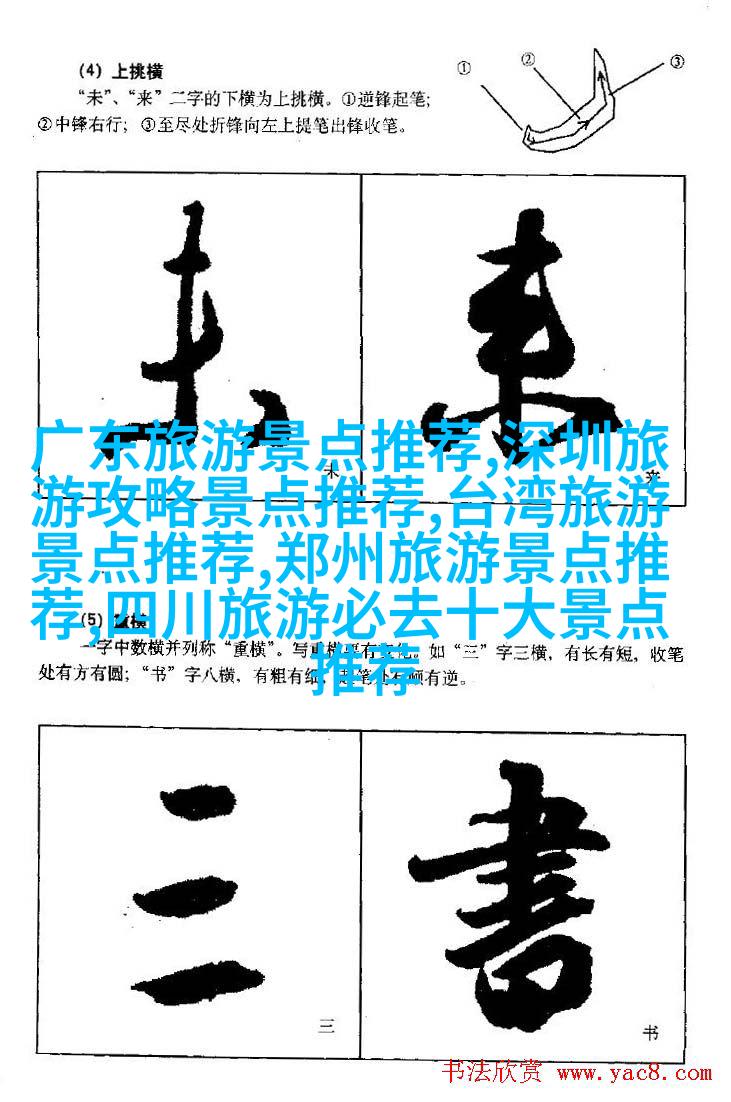 (4) 上挑横
“未”、“来”二字的下横为上挑横。①逆锋起笔；
②中锋右行；③至尽处折锋向左上提笔出锋收笔。
① ② ③
未 来
未
来
广东旅游景点推荐,深圳旅
游攻略景点推荐,台湾旅游
景点推荐,郑州旅游景点推
荐,四川旅游必去十大景点
推荐
(5) 重横
一字中数横并列称“重横”。写重横要有变化。如“三”字三横，有长有短，收笔
处有方有圆；“书”字八横，有粗有细，起笔处有顿有逆。
三 書
三
书
书法欣赏 www.yac8.com